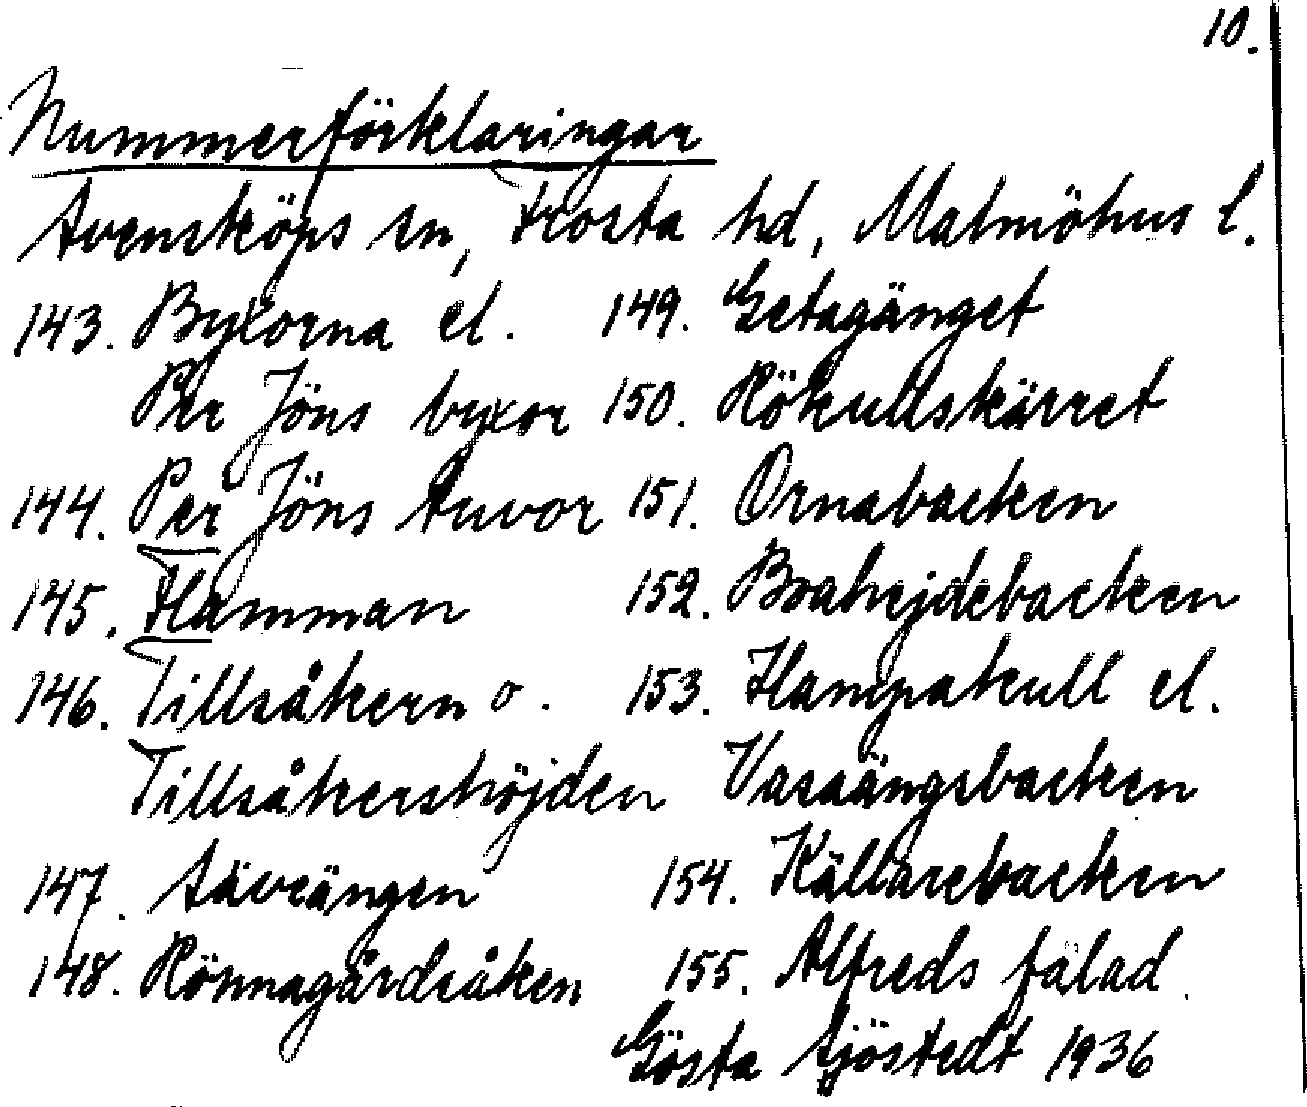 10.
Nummerförklaringar
Svensköps sn, Frosta hd, Malmöhus l.
143. Byxorna el.
Per Jöns byxor
144. Per Jöns tuvor
145. Hamman
146. Tillsåkern o.
Tillsåkershöjden
147. Säveängen
148. Rönnagårdsåken
149. Getagänget
150. Rökullskärret
151. Ornabacken
152. Brahejdebacken
153. Hampakull el.
Vasaängsbacken
154. Källarebacken
155. Alfreds fälad
Gösta Sjöstedt 1936